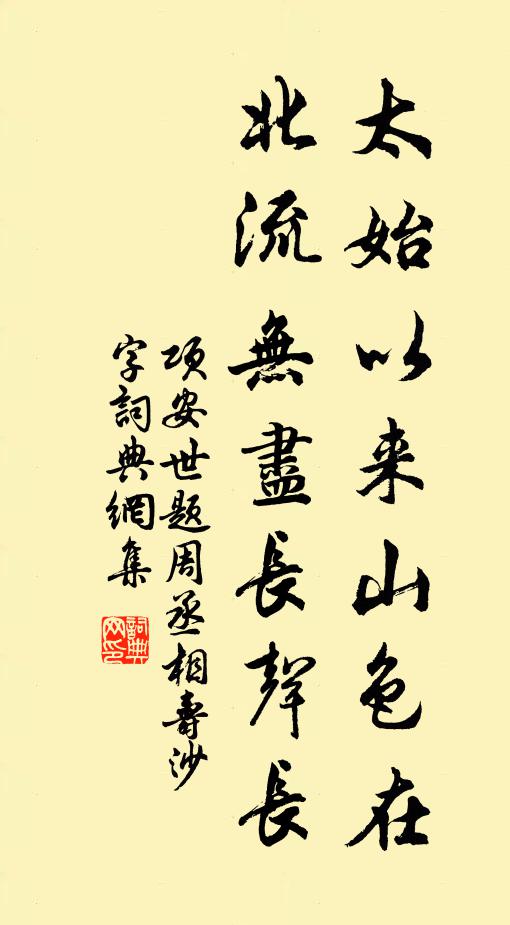 太始以来山色在
北流無盡長聲長
项安世题周丞相壽沙
字詞典網集
詞典网印